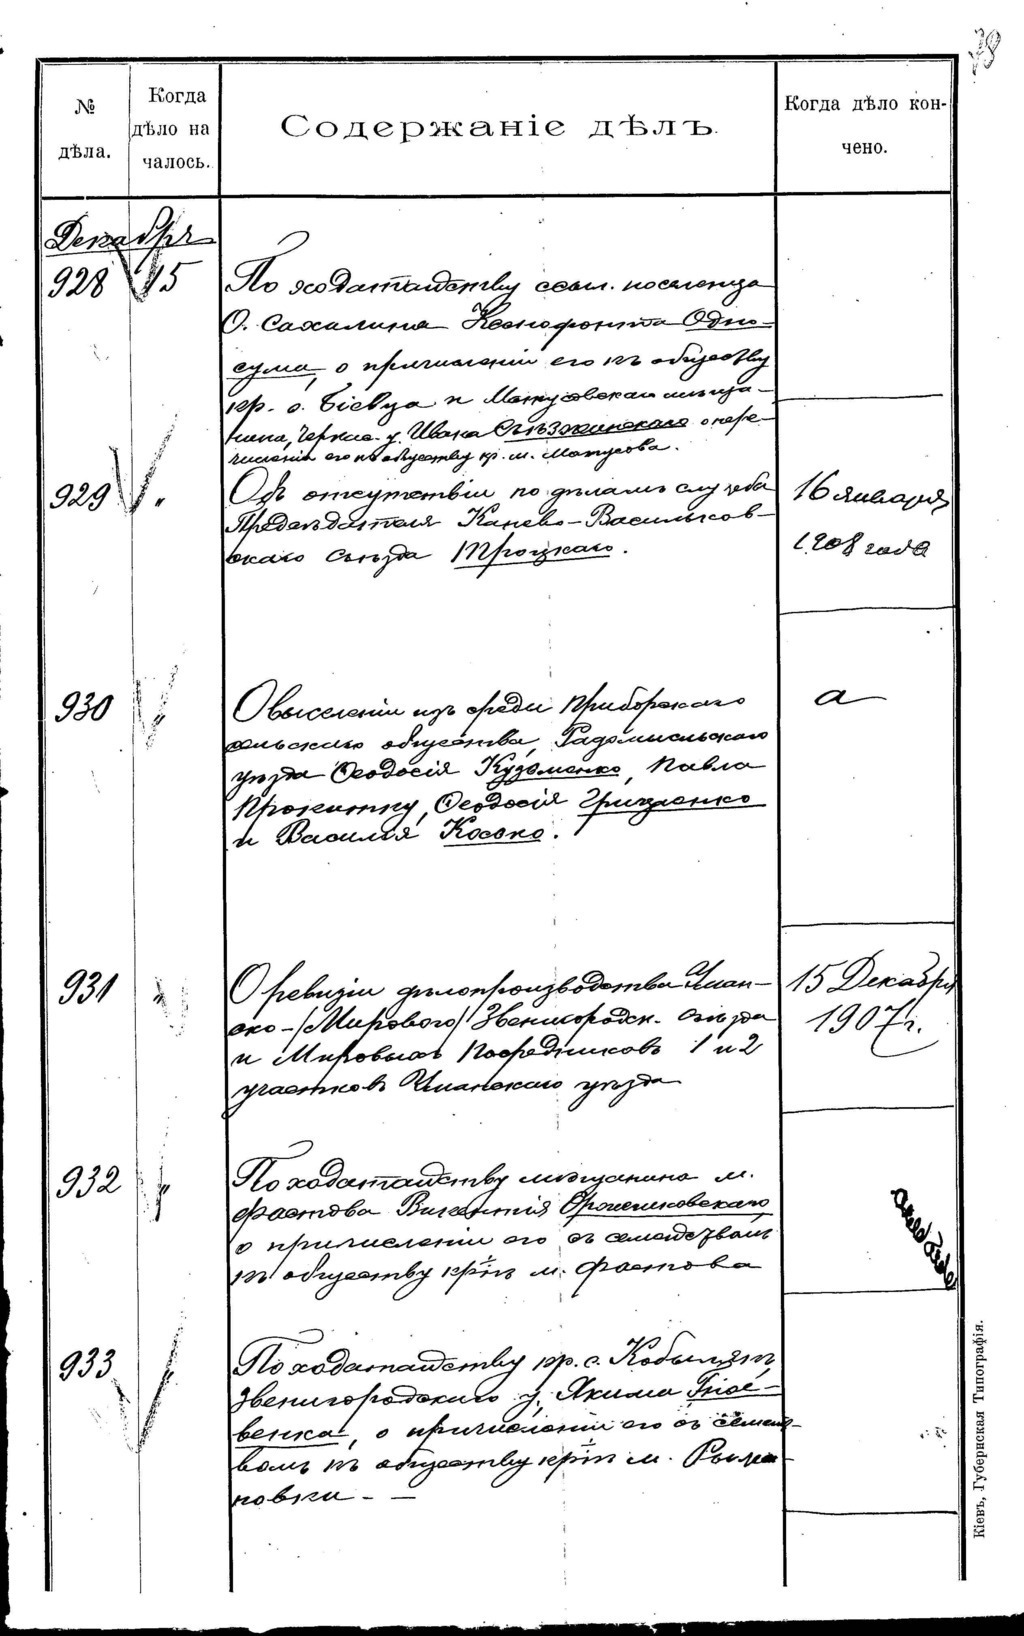 №
дѣла.
Когда
дѣло на
чалось.
Содержаніе дѣлъ.
Когда дѣло кон-
чено.
Декабрь
928 15 По ходатайству ссыл. поселенца
О. Сахалина Ксенофонта Одно-
сума, о причисленіи его къ обществу
кр. с. Бієвца и Матусовскаго мѣща-
нина, Черкас. у. Ивана о пере-
численіи его къ обществу кр. м. Матусова.
929 " Объ отсутствіи по дѣламъ службы
Предсѣдателя Канево-Васильков-
скаго Съѣзда Троцкаго.
16 января
1908 года
930 " О выселеніи изъ среды Приборскаго
сельскаго общества, Радомысльскаго
уѣзда Ѳеодосія Кузьменко, Павла
Прокитку, Ѳеодосія Гриценко
и Василія Косько.
а
931 " О ревизіи дѣлопроизводства Уман-
ско-/Мирового/ Звенигородск. Съѣзда
и Мировыхъ Посредниковъ 1 и 2
участковъ Уманскаго уѣзда
15 Декабря
1907 г.
932 " По ходатайству мѣщанина м.
Фастова Викентія
о причисленіи его съ семействомъ
къ обществу кр-нъ м. Фастова
933 " По ходатайству кр. с. Кобыляк
Звенигородскаго у. Якима Гніє-
венка, о причисленіи его съ семейст-
вомъ къ обществу кр-нъ м. Рыжа-
новки -
Кіевъ, Губернская Типографія.